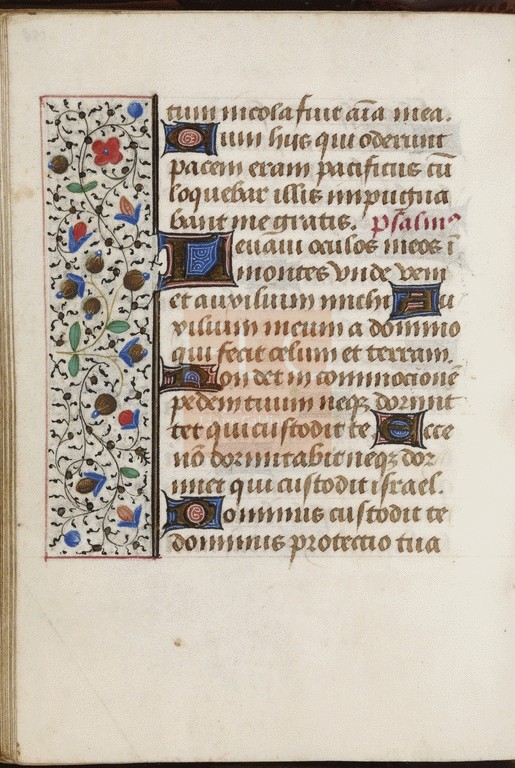 tum incola fuit aīa mea.
Cum hijs qui oderunt
pacem eram pacificus cū
loquebar illis inpugna
bant me gratis. psalm9
Leuaui oculos meos ī
montes vnde veni
et auxilium michi Au
xilium meum a domino
qui fecit celum et terram.
Non det in commocionē
pedem tuum neqꝫ dormit
tet qui custodit te Ecce
nō dormitabit neqꝫ dor
miet qui custodit israel.
Dominus custodit te
dominus protectio tua